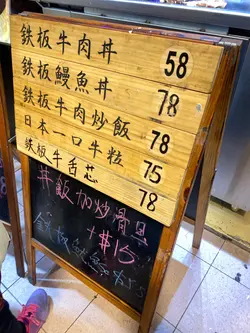 鉄板牛肉丼 58
鉄板鰻魚丼 78
鉄板牛肉炒飯 78
日本一口牛粒 75
鉄板牛舌芯 78
丼飯加炒骨具
+$15
鉄板鰻魚